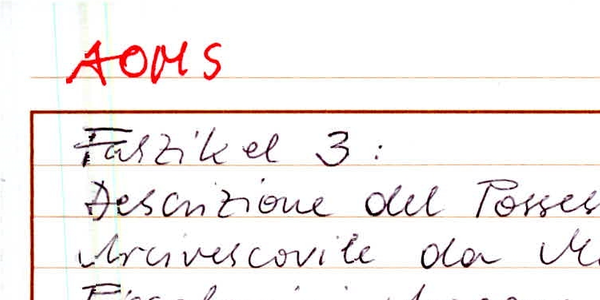 AOMS
Faszikel 3:
Descrizione del Posses
Arcivescovile da M.